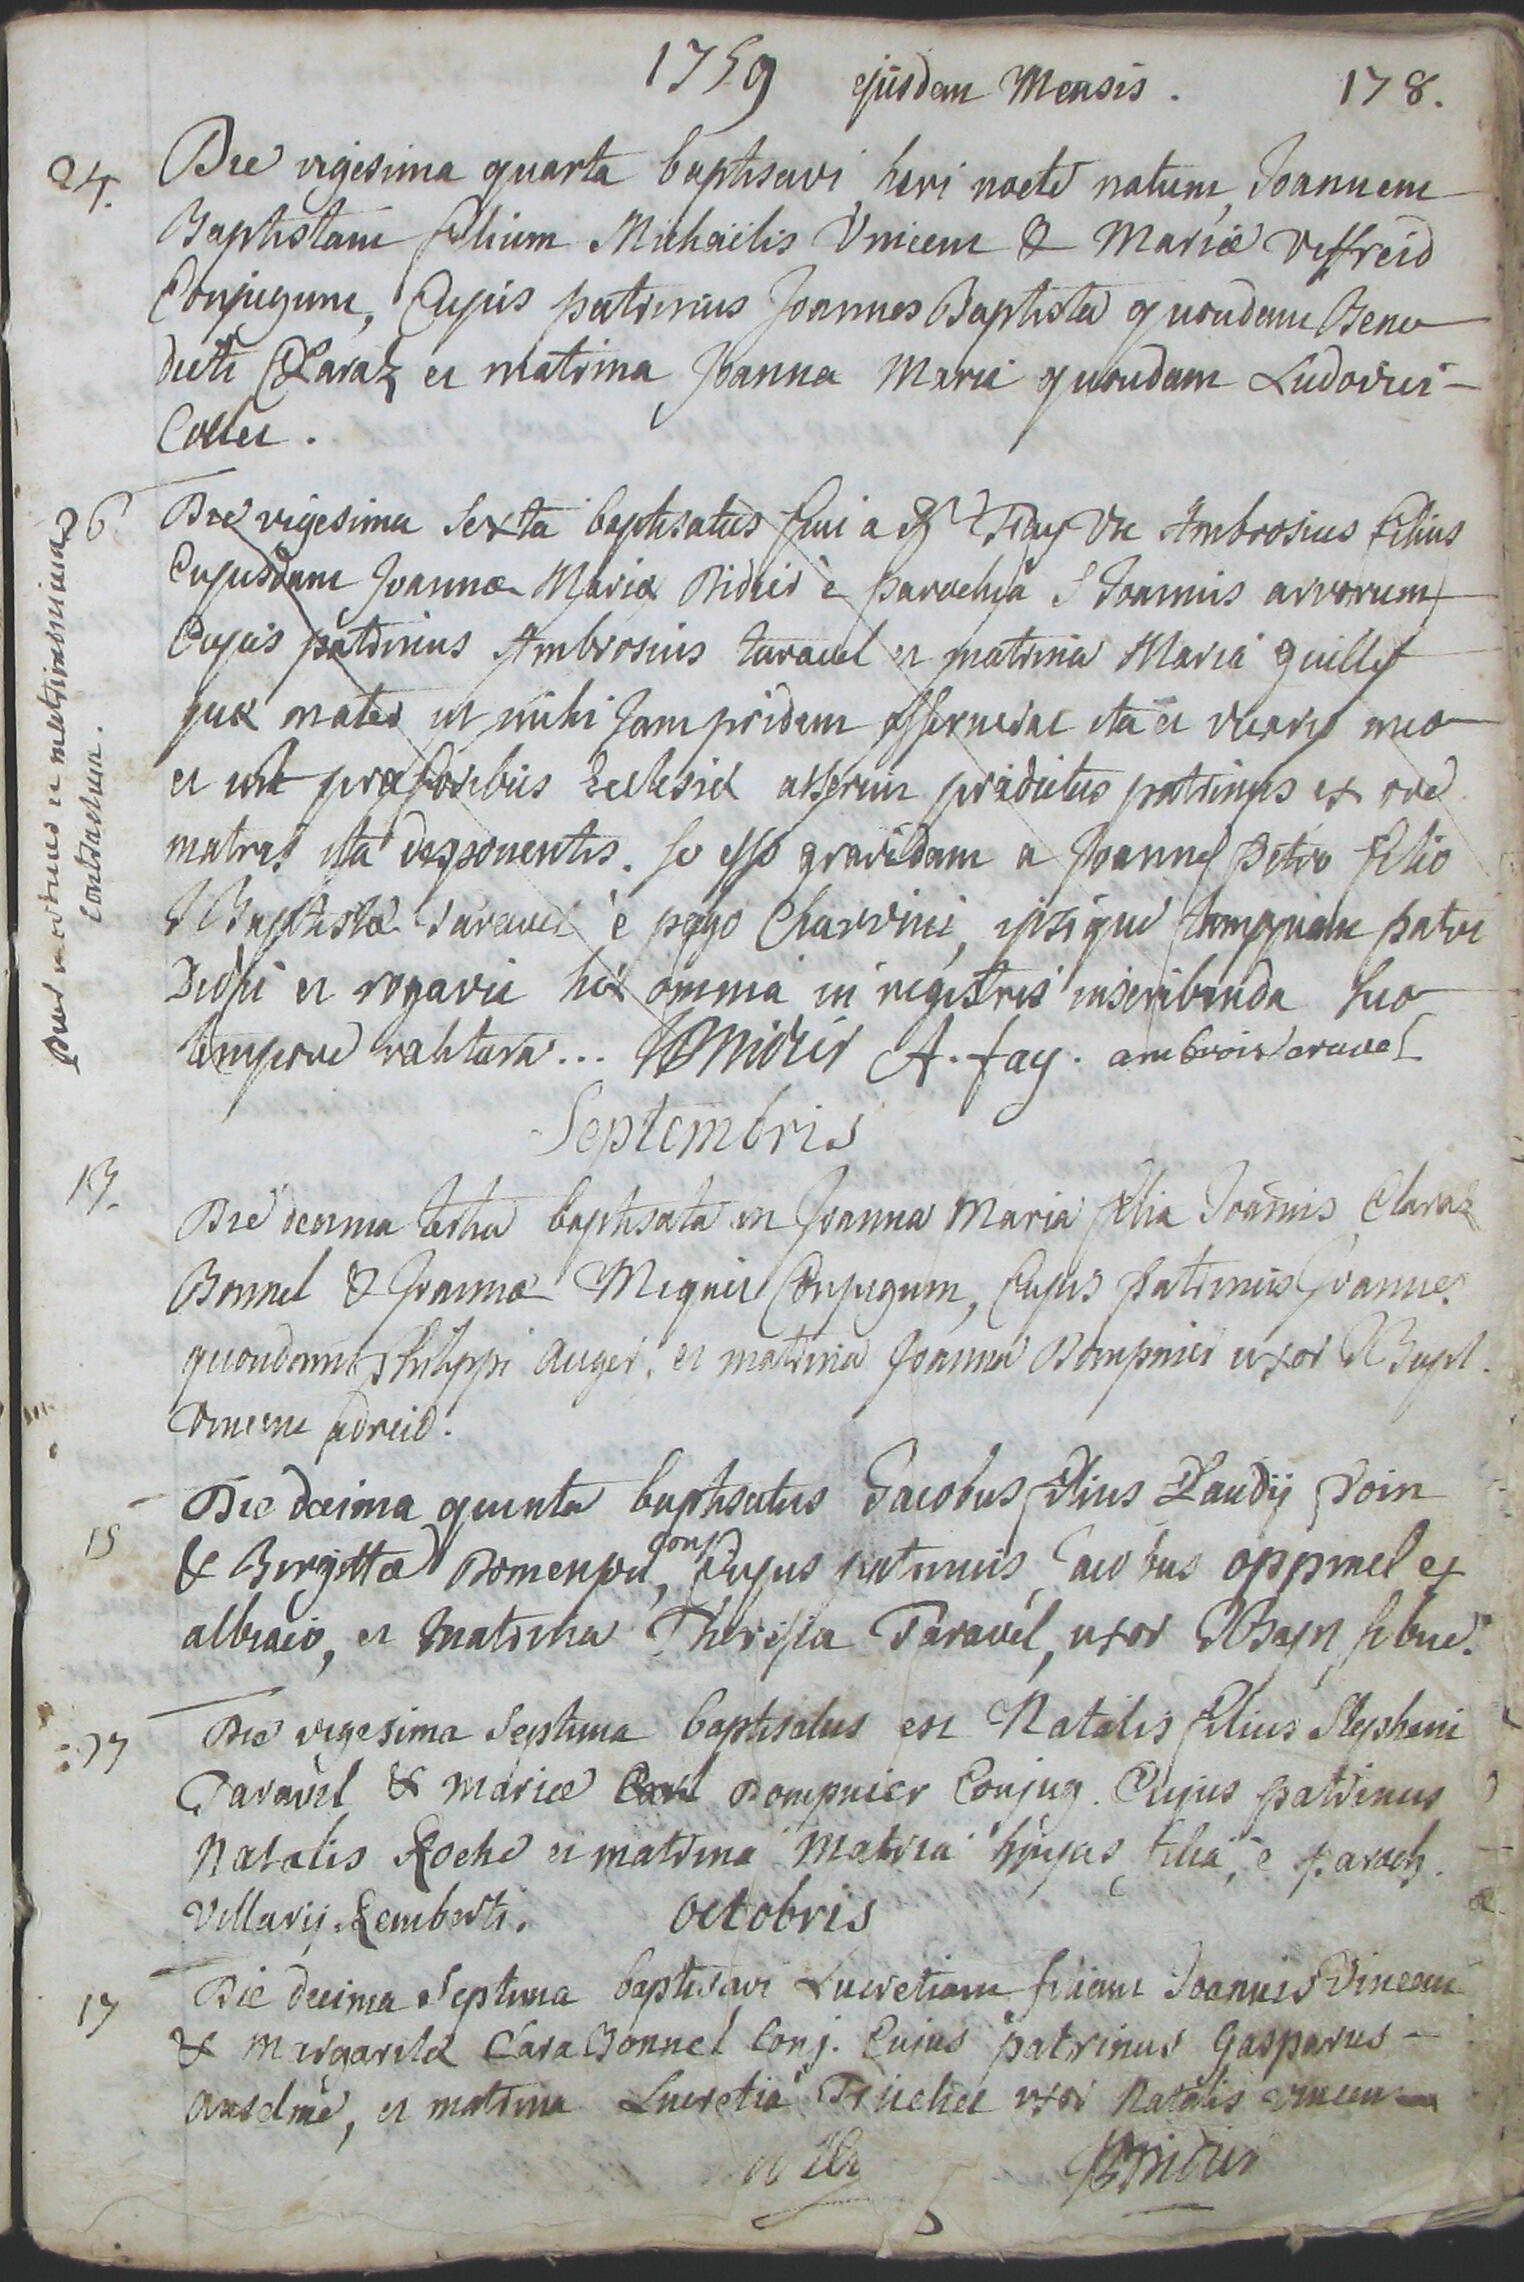 1759 ejusdem Mensis. 178.
24. Die vigesima quarta baptisavi heri nocte natum Joannem
Baptistam filium Michaelis Vincent & Mariæ Veffreid
Conjugum, Cujus patrinus Joannes Baptista quondam Bene
dicti Claraz et matrina Joanna Maria quondam Ludovici
Collet.
26 Die vigesima Sexta baptisatus fuit a Fay Ambrosius filius
Cujusdam Joannæ Mariæ Didier è parochia S Joannis arvorum
Cujus patrinus Ambrosius taravel et matrina Maria guille
quæ mater ut mihi Jam pridem ita et vicario meo
et præ foribus Ecclesiæ asseruit prædictus patrinus ex ore
matris ita deponentis. se esse gravidam a Joanne petro filio
JBaptistæ taravel è pago Charvini, ipsique tamquam patri
Dedit et rogavit hæc omnia in registris inscribenda suo
tempore valitura... A. fay. ambrois taravel
puer mortuus et matrimonium
contractum.
Septembris
13. Die decima tertia baptisata est Joanna Maria filia Joannis Claraz
Bonnel & Joannæ Miquet Conjugum, Cujus patrinus Joannes
quondam Philippi Auger, et matrina Joanna Dompnier uxor JBapt.
Vincent adreid.
15 Die decima quinta baptisatus Jacobus filius Claudij Doin
& Birgittæ Domenget, conj Cujus patrinus Jacobus oppinel ex
albiaco, et Matrina Theresia Taravel, uxor JBapt
27 Die vigesima Septima baptisatus est Natalis filius Stephani
Taravel & Mariæ Dompnier Conjug. Cujus patrinus
Natalis Roche et matrina Maria hujus filia, è paroch.
Villarij Lemberti. Octobris
17 Die decima Septima baptisavi Lucretiam filiam Joannis Vincent
& Margaritæ ClaraBonnel Conj. Cujus patrinus Gasparus
Anselme, et matrina Lucretia Truchet uxor Natalis Vincent